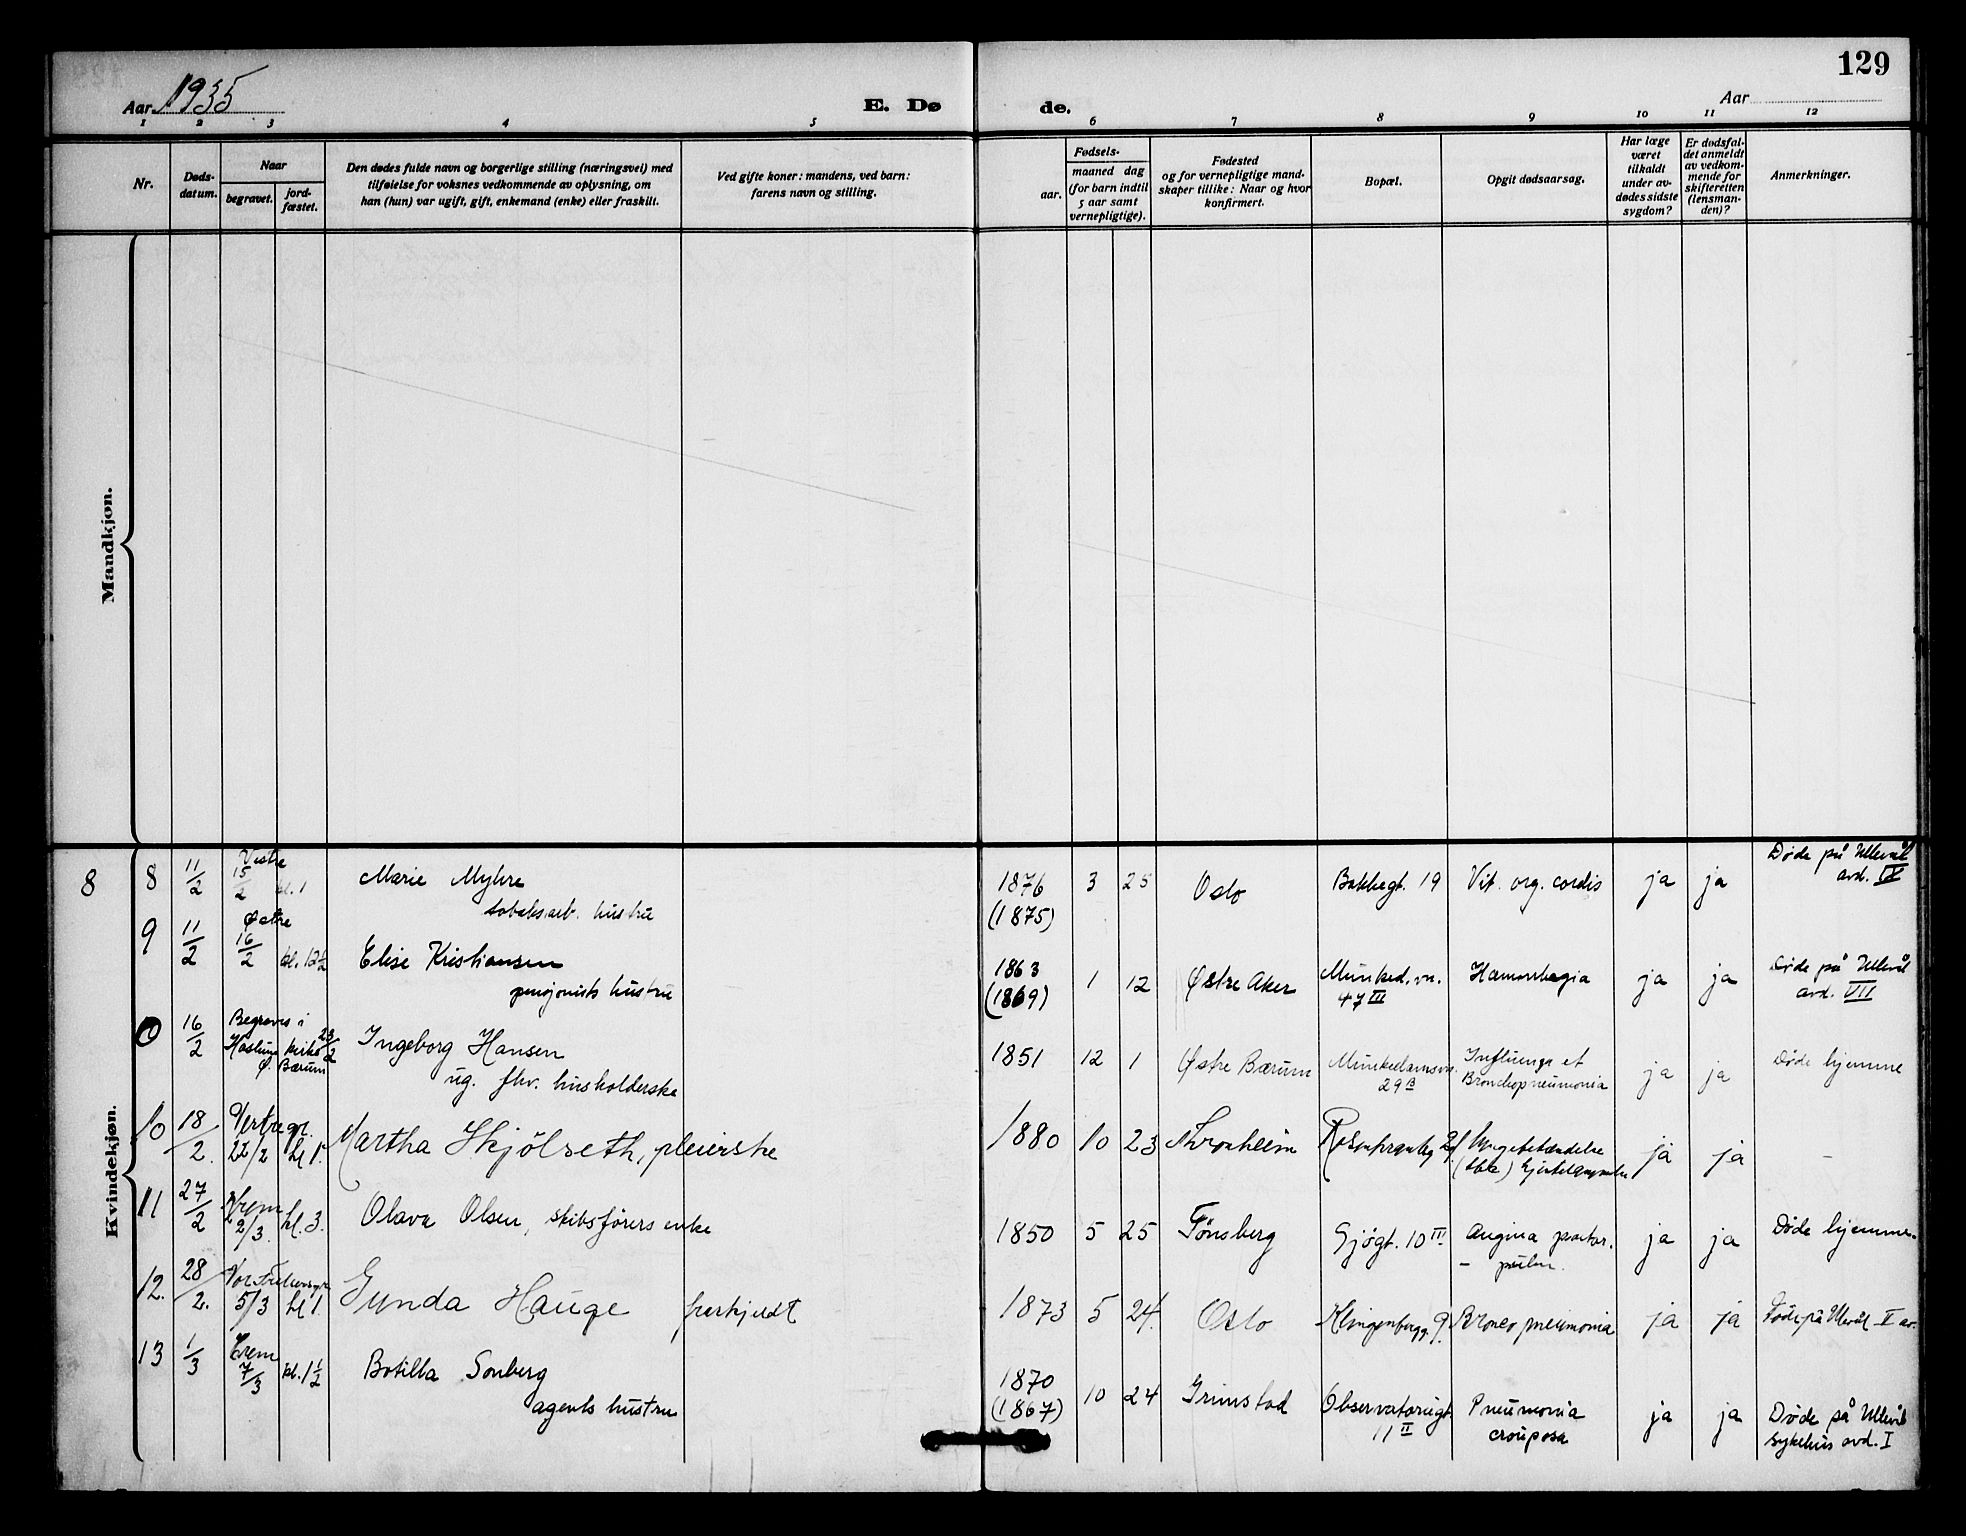 129
Aar 1935
E. Dø
de.
Aar
1 2 3 4 5 6 7 8 9 10 11 12
Nr.
Døds-
datum.
Naar
begravet.
jord-
fæstet.
Den dødes fulde navn og borgerlige stilling (næringsvei) med
tilføielse for voksnes vedkommende av oplysning, om
han (hun) var ugift, gift, enkemand (enke) eller fraskilt.
Ved gifte koner: mandens, ved barn:
farens navn og stilling.
Fødsels-
aar.
maaned dag
(for barn indtil
5 aar samt
vernepligtige).
Fødested
og for vernepligtige mand-
skaper tillike: Naar og hvor
konfirmert.
Bopæl.
Opgit dødsaarsag.
Har læge
været
tilkaldt
under av-
dødes sidste
sygdom?
Er dødsfal-
det anmeldt
av vedkom-
mende for
skifteretten
(lensman-
den)?
Anmerkninger.
Mandkjøn.
Kvindekjøn.
8
8 11/2 Vestre 15/2 kl. 1 Marie Myhre
tobaksarb. hustru
1876 3 25 Oslo Bakkegt. 19 Vit. org. cordis ja ja Døde på Ullevål
(1875) avd. IX
9 11/2 Østre 16/2 kl. 12½ Elise Kristiansen
pensjonists hustru
1863 1 12 Østre Aker Munked.vn. Hæmorrhagia ja ja Døde på Ullevål
(1869) 47 III avd. VII
0 16/2 Begraves i
Haslum kirke 23/2
Ø. Bærum
Ingeborg Hansen
ug. fhv. husholderske
1851 12 1 Østre Bærum Munkedamsvn. Influenza et ja ja Døde hjemme
29 B Bronchopneumonia
10 18/2. 22/2 kl 1. Martha Skjölseth, pleierske
1880 10 23 Tronheim ja ja –
11 27/2 2/3. kl. 3. Olava Olsen, skibsförers enke
1850 5 25 Tönsberg Sjøgt. 10 III Angina ja ja Døde hjemme.
12. 28/2. Vor Frelsersgr. 5/3 kl 1. Gunda Hauge
1873 5 24. Oslo Klingenbergg. 9. Bronco pneumonia ja ja Døde på Ullevål
13 1/3 Krem 7/3 kl. 1½ Botilla Sonberg
agents hustru
1870 10 24 Grimstad Observatoriegt. Pneumonia ja ja Døde på Ullevål
(1867) 11 II crouposa sykehus avd. I